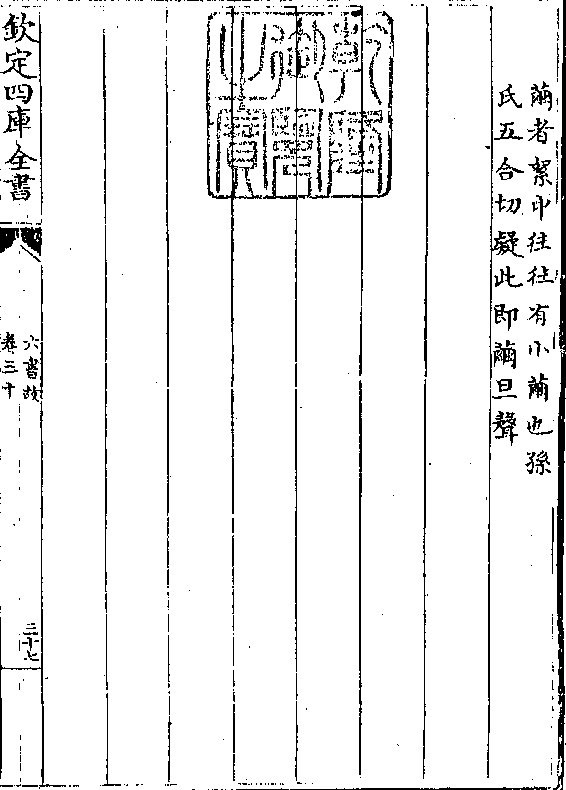 繭者絮中往往有小繭也孫
氏五合切疑此即繭旦聲
乾隆御覽之寶
欽定四庫全書
六書故
卷三十
三十七